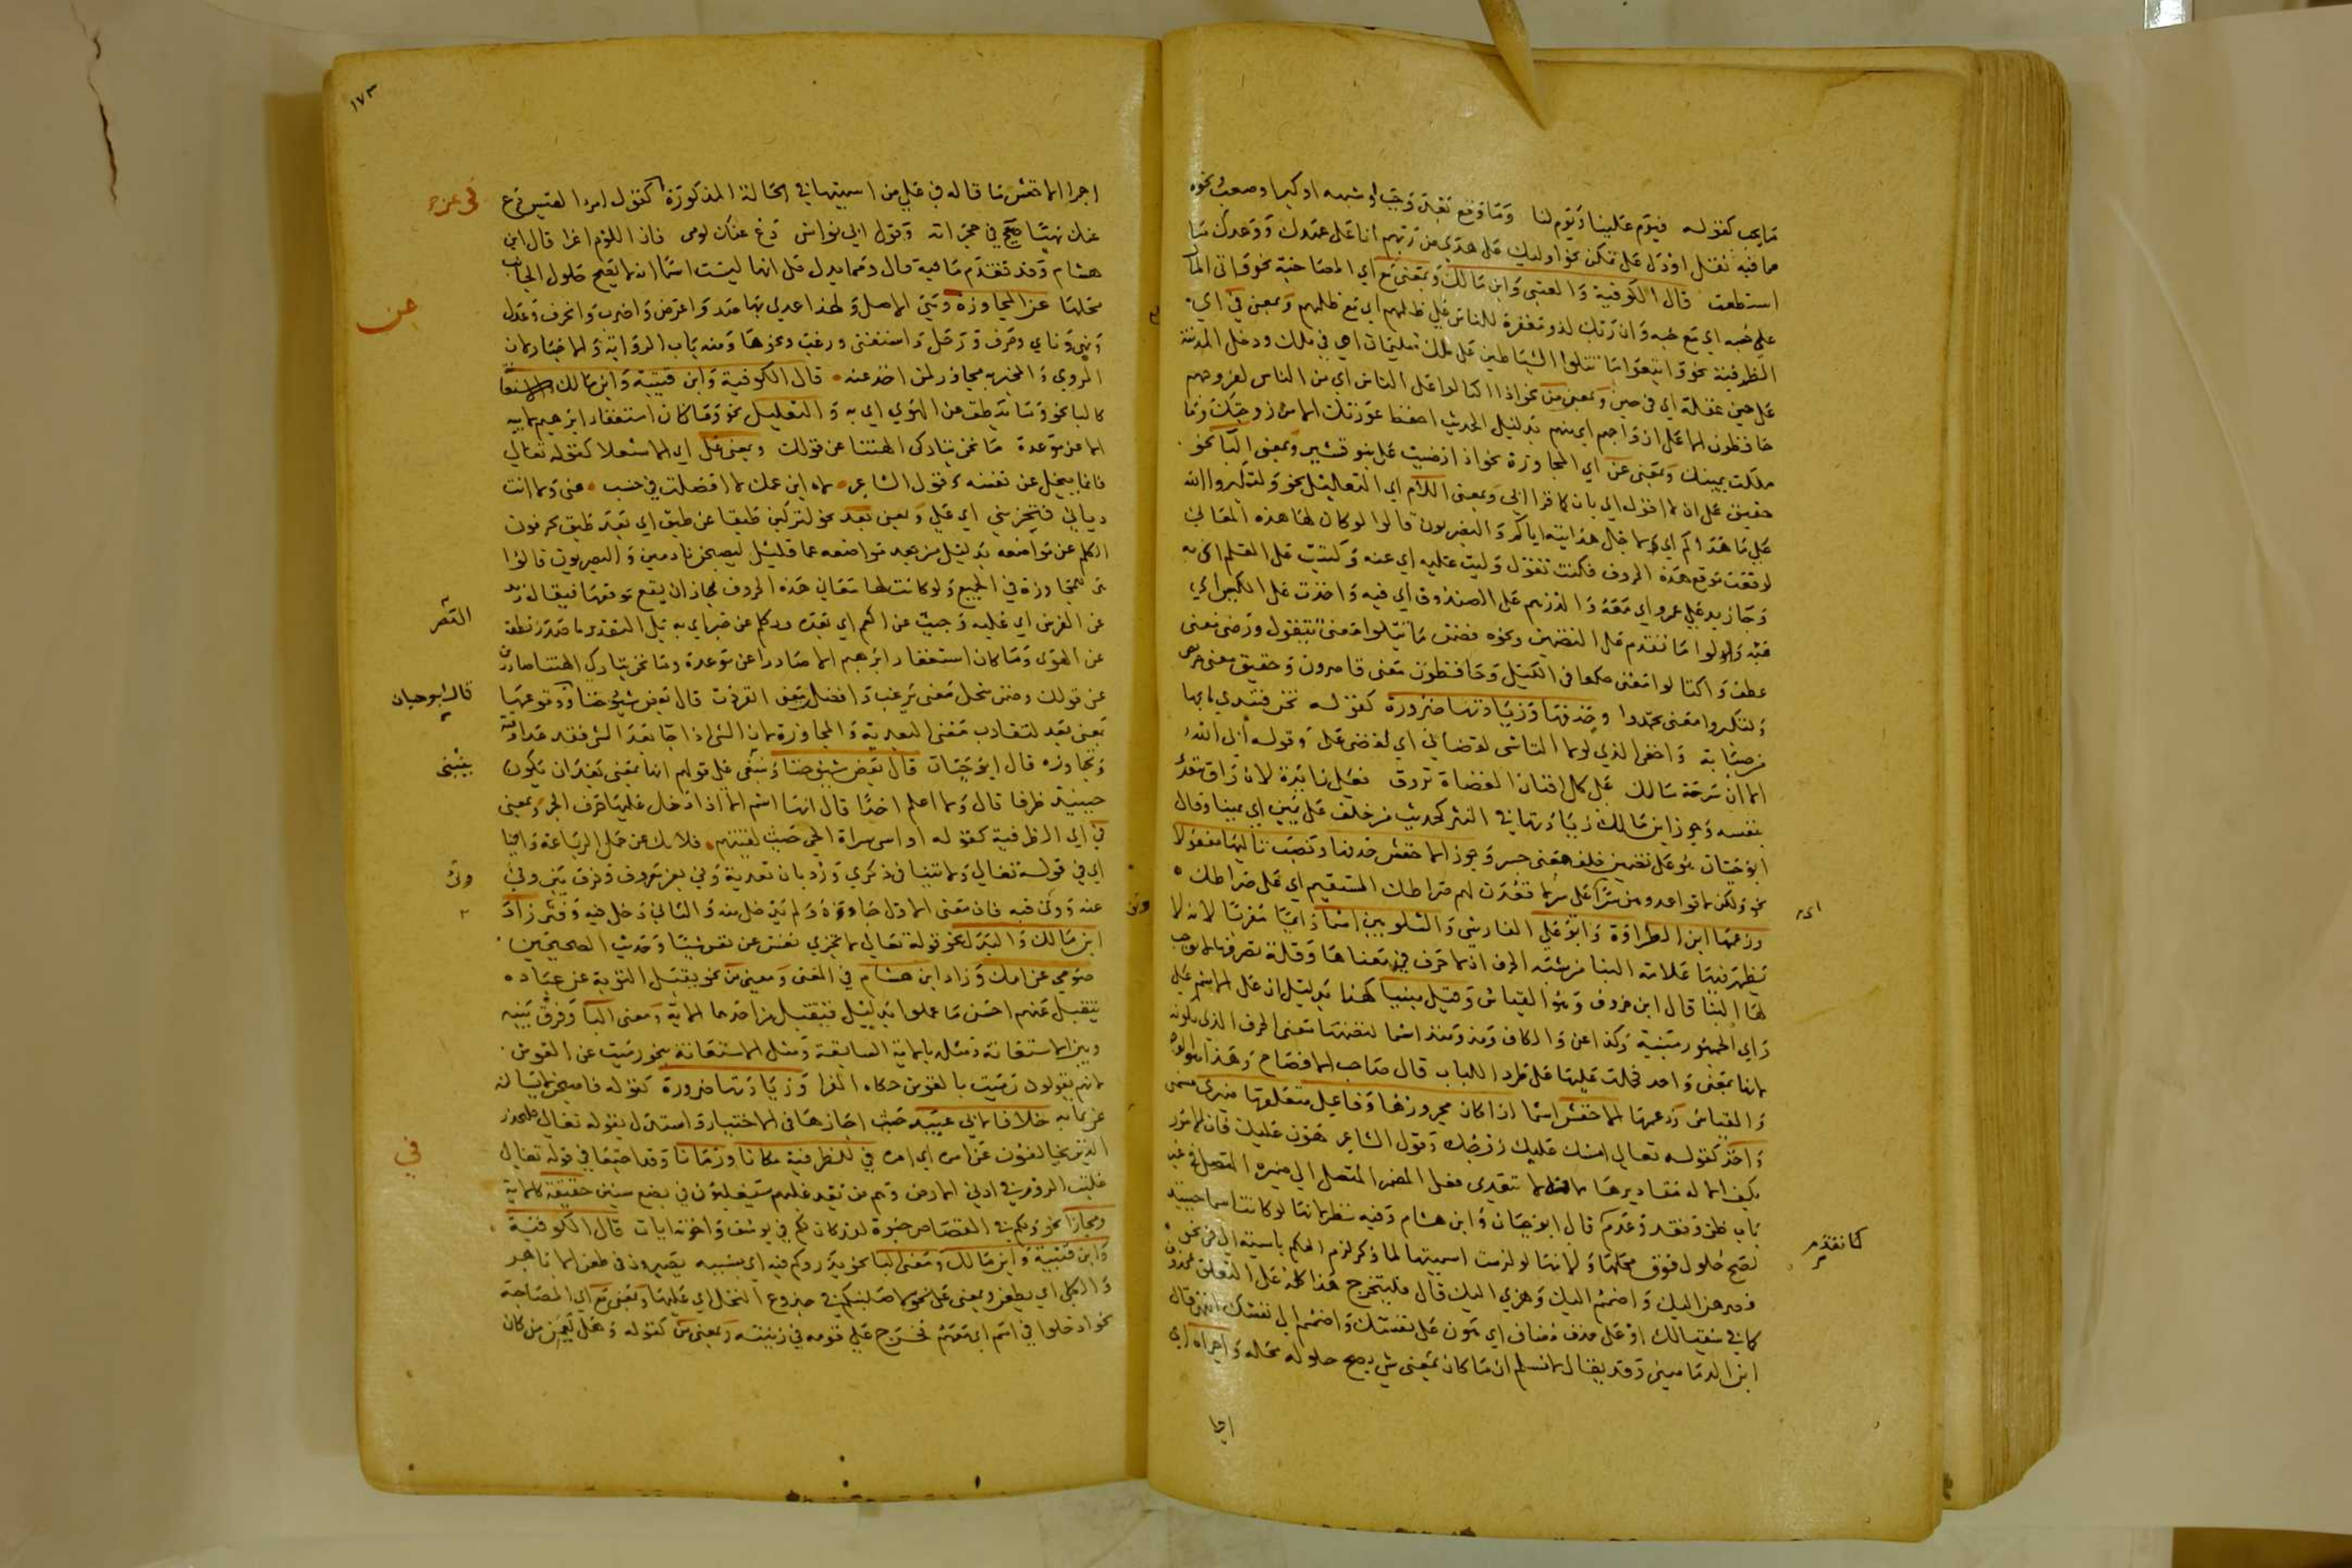 ما يجب كقوله فيوم علينا ويوم لنا وما وقع بعد وجب او شبهه او كبر او صعب ونحوه
مما فيه ثقل او دل على تمكن نحو اولئك على هدى من ربهم انا على عهدك ووعدك ما
استطعت قال الكوفية والعتبي وابن مالك وبمعنى مع اي المصاحبة نحو واتى المال
على حبه اي مع حبه وان ربك لذو مغفرة للناس على ظلمهم اي مع ظلمهم وبمعنى في اي
الظرفية نحو واتبعوا ما تتلوا الشياطين على ملك سليمان اي في ملك ودخل المدينة
على حين غفلة اي في حين وبمعنى من نحو اذا اكتالوا على الناس اي من الناس لفروجهم
حافظون الا على ازواجهم اي منهم بدليل الحديث احفظ عورتك الا من زوجتك وما
ملكت يمينك وبمعنى عن اي المجاوزة نحو اذا رضيت على بنو قشير وبمعنى البا نحو
حقيق على ان لا اقول اي بان كما قرا ابي وبمعنى اللام اي التعليل نحو ولتكبروا الله
على ما هداكم اي لاجل هدايته اياكم والبصريون قالوا لو كان لها هذه المعاني
لوقعت موقع هذه الحروف فكنت تقول وليت عليه اي عنه وكتبت على القلم اي به
وجا زيد على عمرو اي معه والدرهم على الصندوق اي فيه واخذت على الكيس اي
منه واولوا ما تقدم على التضمين ونحوه فضمن ما تتلوا معنى تتقول ورضي معنى
عطف واكتالوا معنى حكموا في الكيل وحافظون معنى قاصرون وحقيق معنى حريص
ولتكبروا معنى تحمدوا وحذفها وزيادتها ضرورة كقوله تحن فتبدي ما بها
من صبابة واخفي الذي لولا الاسى لقضاني اي لقضى علي وقوله ابى الله
الا ان سرحة مالك على كل افنان العضاة تروق فعلى زائدة لان راق متعد
بنفسه وجوز ابن مالك زيادتها في النثر كحديث من حلف على يمين اي يمينا وقال
ابو حيان هو على تضمين حلف معنى جسر وجوز الاخفش حذفها ونصب تاليها مفعولا
نحو ولكن لا تواعدوهن سرا اي على سر لاقعدن لهم صراطك المستقيم اي على صراطك
وزعمها ابن الطراوة وابو علي الفارسي والشلوبين اسما دائما معربا لانه لا
يظهر فيها علامة البنا من شبه الحرف اذ لا حرف في معناها وقلة تصرفها لا يوجب
لها البنا قال ابن خروف وهو القياس وقيل مبنيا كهذا بدليل ان على الاسم على
راي الجمهور مبنية وكذا عن والكاف ومذ ومنذ اسما لتضمنها معنى الحرف الذي يكونه
لانها بمعنى واحد فحملت عليها على طرد الباب قال صاحب الافصاح وهذا هو الوجه
والقياس وزعمها الاخفش اسما اذا كان مجرورها وفاعل متعلقها ضميري مسمى
واحد كقوله تعالى امسك عليك زوجك وقول الشاعر هون عليك فان الامور
بكف الاله مقاديرها لانه لا يتعدى فعل المضمر المتصل الى ضميره المتصل في غير
باب ظن وفقد وعدم قال ابو حيان وابن هشام وفيه نظر لانها لو كانت اسما حينئذ
لصح حلول فوق محلها ولانها لو لزمت اسميتها لما ذكر لزم الحكم باسمية الى في نحو
فصرهن اليك واضمم اليك وهزي اليك قال فليتخرج هذا كله على التعلق بمحذوف
كما في سقيا لك او على حذف مضاف اي هون على نفسك واضمم الى نفسك انتهى قال
ابن الدماميني وقد يقال لا نسلم ان ما كان بمعنى شي يصح حلوله محله واجراه اي
اجرا
كما تقدم
١٧٣
اجرا الاخفش ما قاله في على من اسميتها في الحالة المذكورة كقول امرء القيس دع
في عن
عنك نهبا صيح في حجراته وقول ابي نواس دع عنك لومي فان اللوم اغرا قال ابن
هشام وقد تقدم ما فيه قال ومما يدل على انها ليست اسما انه لا يصح حلول الجانب
عن
محلها عن للمجاوزة وهي الاصل ولهذا عدي بها صد واعرض واضرب وانحرف وعدل
ونهى وناى وحرف ورحل واستغنى ورغب ونحوها ومنه باب الرواية والاخبار لان
المروي والمخبر به مجاوز لمن اخذ عنه قال الكوفية وابن قتيبة وابن مالك
كالبا نحو وما ينطق عن الهوى اي به والتعليل نحو وما كان استغفار ابراهيم لابيه
الا عن موعدة وما نحن بتاركي الهتنا عن قولك وبمعنى على اي الاستعلا كقوله تعالى
فانما يبخل عن نفسه وقول الشاعر لاه ابن عمك لا افضلت في حسب عني ولا انت
دياني فتخزوني اي علي وبمعنى بعد نحو لتركبن طبقا عن طبق اي بعد طبق يحرفون
الكلم عن مواضعه بدليل من بعد مواضعه عما قليل ليصبحن نادمين والبصريون قالوا
هي للمجاوزة في الجميع ولو كانت لها معاني هذه الحروف لجاز ان يقع موقعها فيقال زيد
عن الفرس اي عليه وجيت عن العصر اي بعده وتكلم عن خبر اي به بل التقدير ما صدر نطقه
العصر
عن الهوى وما كان استغفار ابراهيم الا صادرا عن موعدة وما نحن بتاركي الهتنا صادرين
عن قولك وضمن يبخل معنى يرغب وافضل بمعنى انفردت قال بعض شيوخنا ووقوعها
قال ابو حيان
بمعنى بعد لتقارب معنى البعدية والمجاوزة لان الشي اذا جا بعد الشي فقد عدا وقته
وتجاوزه قال ابو حيان قال بعض شيوخنا وينبغي على قولهم انها بمعنى بعد ان يكون
ينبغي
حينئذ ظرفا قال ولا اعلم احدا قال انها اسم الا اذا دخل عليها حرف الجر وبمعنى
في اي الظرفية كقوله واس سراة الحي حيث لقيتهم فلا تك عن حمل الرباعة وانيا
اي في قوله تعالى ولا تنيا في ذكري ورد بان تعدية وني بعن معروف وفرق بين ونى
ونى
عنه وونى فيه فان معنى الاول جاوزه ولم يدخل منه والثاني دخل فيه وفتر زاد
ابن مالك والبدل نحو قوله تعالى لا تجزي نفس عن نفس شيئا وحديث الصحيحين
صومي عن امك وزاد ابن هشام في المغنى ومعنى من نحو يقبل التوبة عن عباده
يتقبل عنهم احسن ما عملوا بدليل فتقبل من احدهما الاية ومعنى البا وفرق بينه
وبين الاستعانة ومثله بالاية السابقة ومثل الاستعانة بنحو رميت عن القوس
لانهم يقولون رميت بالقوس حكاه الفرا وزيادتها ضرورة كقوله فاصبحن لا يسالنه
عن بما به خلافا لابي عبيدة حيث اجازها في الاختيار واستدل بقوله تعالى فليحذر
الذين يخالفون عن امره اي امره في للظرفية مكانا وزمانا وقد اجتمعا في قوله تعالى
في
غلبت الروم في ادنى الارض وهم من بعد غلبهم سيغلبون في بضع سنين حقيقة كالاية
ومجازا نحو ولكم في القصاص حيوة لقد كان لكم في يوسف واخوته ايات قال الكوفية
وابن قتيبة وابن مالك ومعنى البا نحو يذروكم فيه اي بسببه بصيرون في طعن الاباهر
والكلى اي بطعن وبمعنى على نحو لاصلبنكم في جذوع النخل اي عليها وبمعنى مع اي المصاحبة
نحو ادخلوا في امم اي معهم فخرج على قومه في زينته وبمعنى من كقوله وهل يعمن من كان